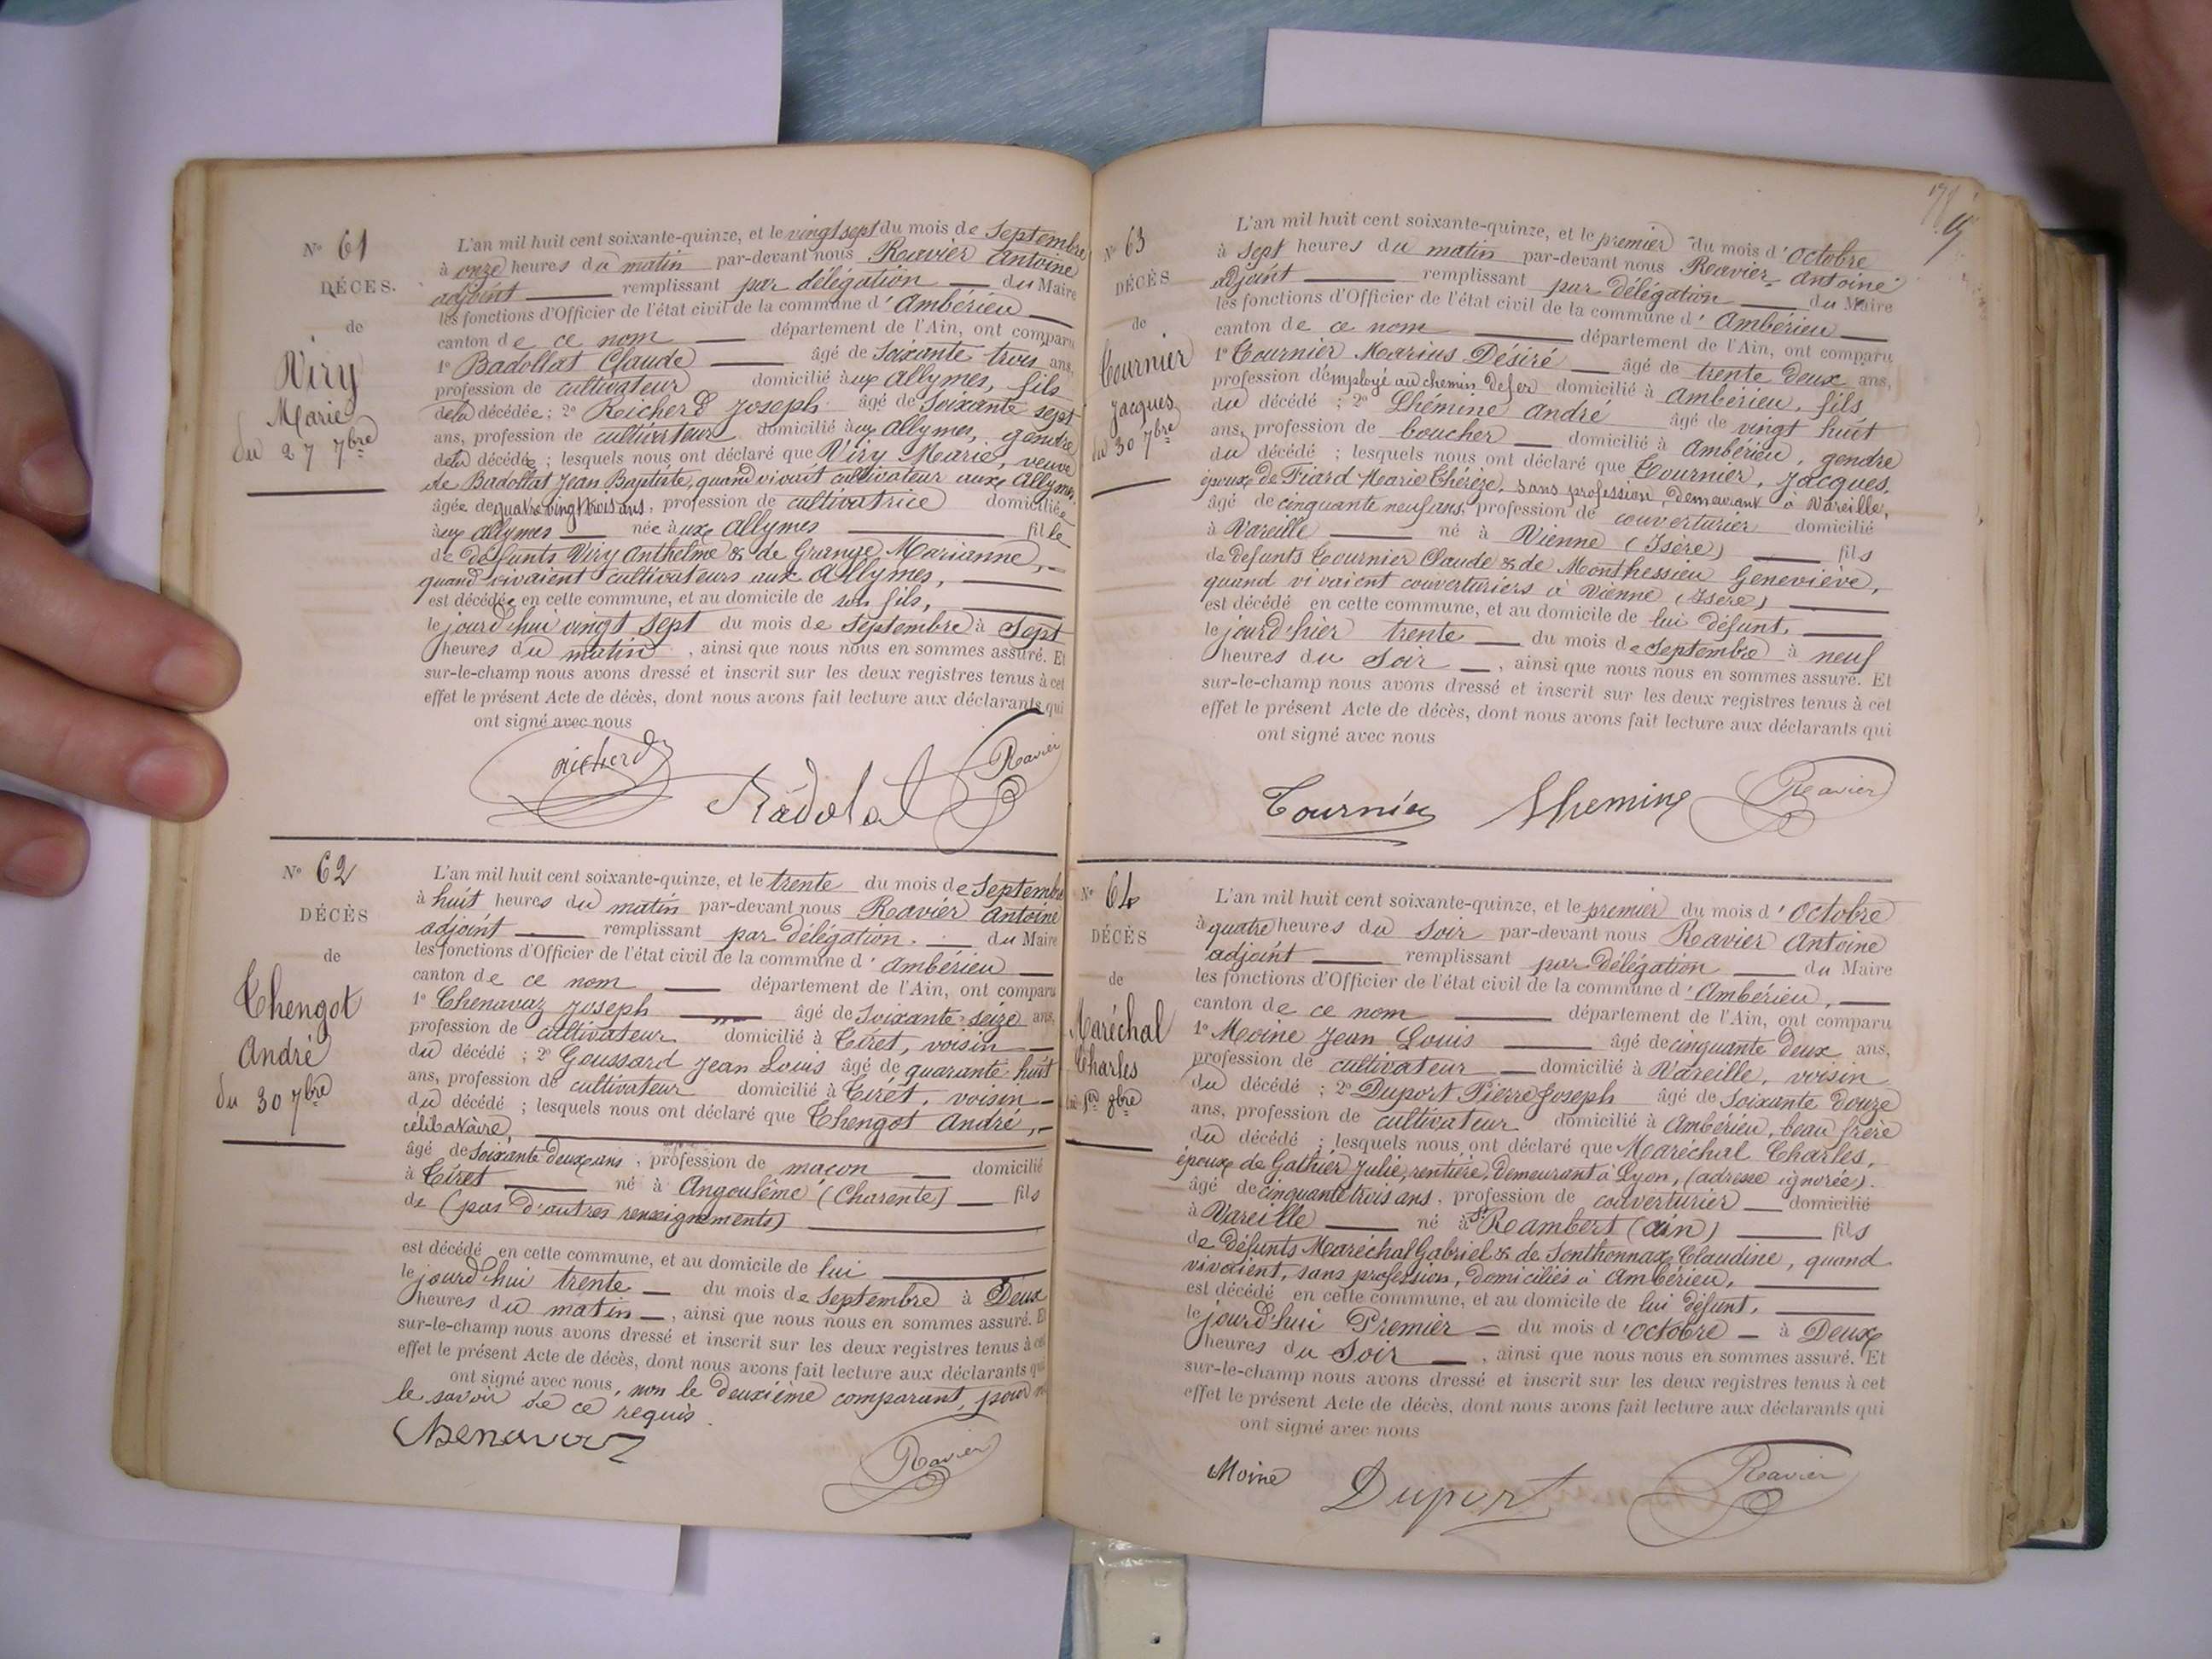 N° 61
DÉCÈS.
de
Viry
Marie
du 27 7bre
L'an mil huit cent soixante-quinze, et le vingt sept du mois de Septembre
à onze heures du matin par-devant nous Ravier Antoine
adjoint remplissant par délégation du Maire
les fonctions d'Officier de l'état civil de la commune d'Ambérieu
canton de ce nom département de l'Ain, ont comparu
1° Badollat Claude âgé de Soixante trois ans,
profession de cultivateur domicilié aux Allymes, fils
de la décédée ; 2° Richerd Joseph âgé de Soixante sept
ans, profession de cultivateur domicilié aux Allymes, gendre
de la décédée ; lesquels nous ont déclaré que Viry Marie, veuve
de Badollat Jean Baptiste, quand vivait cultivateur aux Allymes,
âgée de quatre vingt trois ans, profession de cultivatrice domiciliée
aux Allymes née aux Allymes fille
de défunts Viry Anthelme & de Grange Marianne,
quand vivaient cultivateurs aux Allymes,
est décédée en cette commune, et au domicile de son fils,
le jourd'hui vingt sept du mois de Septembre à Sept
heures du matin, ainsi que nous nous en sommes assuré. Et
sur-le-champ nous avons dressé et inscrit sur les deux registres tenus à cet
effet le présent Acte de décès, dont nous avons fait lecture aux déclarants qui
ont signé avec nous
richerd Badolat Ravier
N° 62
DÉCÈS
de
Thengot
André
du 30 7bre
L'an mil huit cent soixante-quinze, et le trente du mois de Septembre
à huit heures du matin par-devant nous Ravier Antoine
adjoint remplissant par délégation. du Maire
les fonctions d'Officier de l'état civil de la commune d'Ambérieu
canton de ce nom département de l'Ain, ont comparu
1° Chenavaz Joseph âgé de Soixante-seize ans,
profession de cultivateur domicilié à Tiret, voisin
du décédé ; 2° Goussard Jean Louis âgé de quarante huit
ans, profession de cultivateur domicilié à Tiret, voisin
du décédé ; lesquels nous ont déclaré que Thengot André,
célibataire,
âgé de Soixante deux ans, profession de maçon domicilié
à Tiret né à Angoulême (Charente) fils
de (pas d'autres renseignements)
est décédé en cette commune, et au domicile de lui
le jourd'hui trente du mois de Septembre à Deux
heures du matin, ainsi que nous nous en sommes assuré. Et
sur-le-champ nous avons dressé et inscrit sur les deux registres tenus à cet
effet le présent Acte de décès, dont nous avons fait lecture aux déclarants qui
ont signé avec nous, non le deuxième comparant, pour ne
le savoir de ce requis.
Chenavaz Ravier
N° 63
DÉCÈS
de
Tournier
Jacques
du 30 7bre
L'an mil huit cent soixante-quinze, et le premier du mois d'Octobre
à Sept heures du matin par-devant nous Ravier Antoine
adjoint remplissant par délégation du Maire
les fonctions d'Officier de l'état civil de la commune d'Ambérieu
canton de ce nom département de l'Ain, ont comparu
1° Tournier Marius Désiré âgé de trente deux ans,
profession d'employé au chemin de fer domicilié à Ambérieu, fils
du décédé ; 2° Lhémine André âgé de vingt huit
ans, profession de boucher domicilié à Ambérieu, gendre
du décédé ; lesquels nous ont déclaré que Tournier, Jacques,
époux de Fiard Marie Thérèze, sans profession, demeurant à Vareille,
âgé de cinquante neuf ans, profession de couverturier domicilié
à Vareille né à Vienne (Isère) fils
de défunts Tournier Claude & de Monthessieu Geneviève,
quand vivaient couverturiers à Vienne (Isère)
est décédé en cette commune, et au domicile de lui défunt,
le jourd'hier trente du mois de Septembre à neuf
heures du Soir, ainsi que nous nous en sommes assuré. Et
sur-le-champ nous avons dressé et inscrit sur les deux registres tenus à cet
effet le présent Acte de décès, dont nous avons fait lecture aux déclarants qui
ont signé avec nous
Tournier Lhemine Ravier
N° 64
DÉCÈS
de
Maréchal
Charles
du 1er 8bre
L'an mil huit cent soixante-quinze, et le premier du mois d'Octobre
à quatre heures du Soir par-devant nous Ravier Antoine
adjoint remplissant par délégation du Maire
les fonctions d'Officier de l'état civil de la commune d'Ambérieu,
canton de ce nom département de l'Ain, ont comparu
1° Moine Jean Louis âgé de cinquante deux ans,
profession de cultivateur domicilié à Vareille, voisin
du décédé ; 2° Duport Pierre Joseph âgé de Soixante douze
ans, profession de cultivateur domicilié à Ambérieu, beau frère
du décédé ; lesquels nous ont déclaré que Maréchal Charles,
époux de Gathier Julie, rentière, demeurant à Lyon, (adresse ignorée).
âgé de cinquante trois ans, profession de couverturier domicilié
à Vareille né à St Rambert (ain) fils
de défunts Maréchal Gabriel & de Sonthonnax Claudine, quand
vivaient, sans profession, domiciliés à Ambérieu,
est décédé en cette commune, et au domicile de lui défunt,
le jourd'hui Premier du mois d'octobre à Deux
heures du Soir, ainsi que nous nous en sommes assuré. Et
sur-le-champ nous avons dressé et inscrit sur les deux registres tenus à cet
effet le présent Acte de décès, dont nous avons fait lecture aux déclarants qui
ont signé avec nous
Moine Duport Ravier